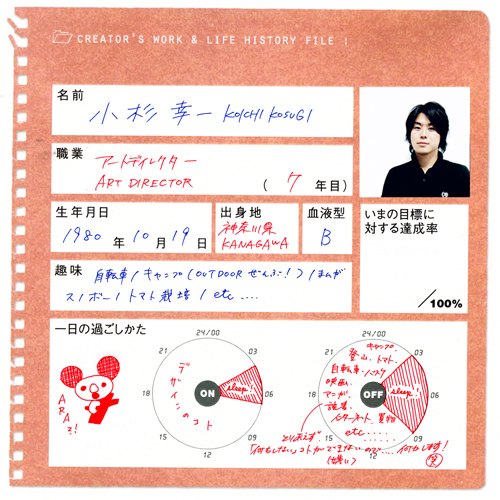 CREATOR'S WORK & LIFE HISTORY FILE !
名前
小杉幸一 KOICHI KOSUGI
職業
アートディレクター
ART DIRECTOR
( 7 年目)
生年月日
1980 年 10 月 19 日
出身地
神奈川県
KANAGAWA
血液型
B
いまの目標に
対する達成率
/100%
趣味
自転車 / キャンプ (OUTDOORぜんぶ!) / まんが
スノボー / トマト栽培 / etc ....
一日の過ごしかた
24/00
21
03
18
06
15
09
12
ON
デザインのコト
sleep!
ARA?!
24/00
21
03
18
06
15
09
12
OFF
キャンプ、
登山、トマト、
自転車、バスケ
映画、
マンガ、
読書、
インターネット、買物
etc......
sleep!
とりあえず
「何もしない」コトができないので.... 何かします!